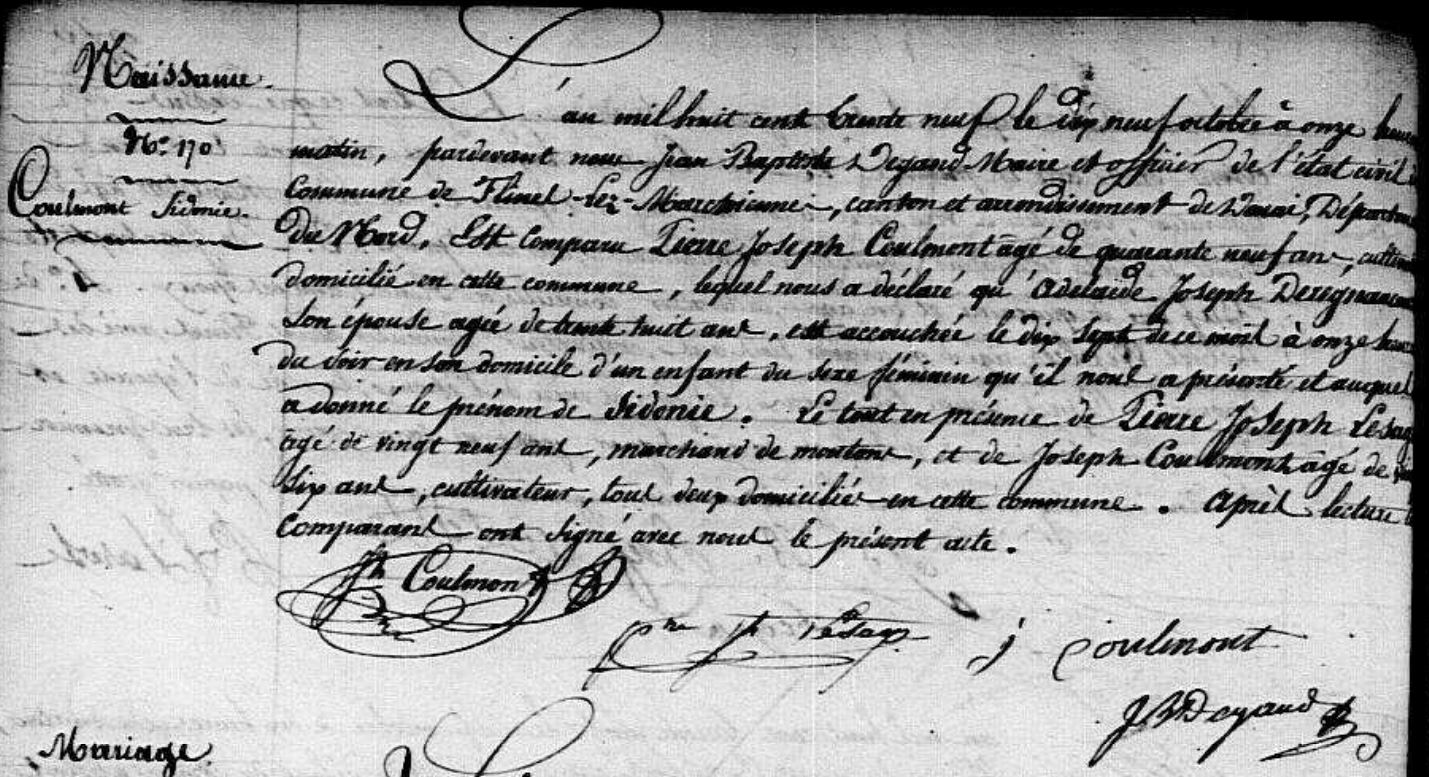 Naissance.
N.º 170
Coulmont Sidonie.
L'an mil huit cent trente neuf le dix neuf octobre à onze heures
matin, pardevant nous Jean Baptiste Degand Maire et officier de l'état civil
Commune de Flines-Lez-Marchiennes, canton et arrondissement de Douai, Départem
Du Nord, Est Comparu Pierre Joseph Coulmont âgé de quarante neuf ans, cultiv
domicilié en cette commune, lequel nous a déclaré qu'Adelaïde Joseph Deregnaucou
Son épouse agée de trente huit ans, est accouchée le dix sept de ce mois à onze heures
du Soir en son domicile d'un enfant du sexe féminin qu'il nous a présenté et auquel
a donné le prénom de Sidonie. Le tout en présence de Pierre Joseph Lesag
âgé de vingt neuf ans, marchand de moutons, et de Joseph Coulmont âgé de
Six ans, cultivateur, tous deux domiciliés en cette commune. Après lecture
Comparant ont Signé avec nous le présent acte.
Jh Coulmont
Pre Jh Lesage
j Coulmont
J B Degand
Mariage.